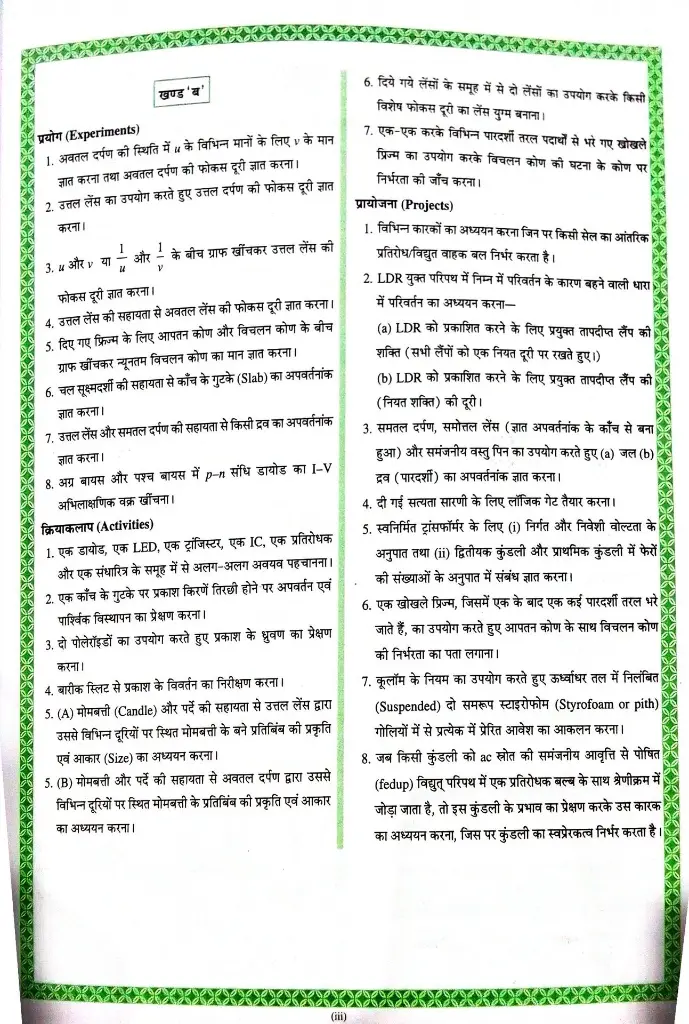 खण्ड 'ब'
प्रयोग (Experiments)
1. अवतल दर्पण की स्थिति में u के विभिन्न मानों के लिए v के मान
ज्ञात करना तथा अवतल दर्पण की फोकस दूरी ज्ञात करना।
2. उत्तल लेंस का उपयोग करते हुए उत्तल दर्पण की फोकस दूरी ज्ञात
करना।
3. u और v या 1/u और 1/v के बीच ग्राफ खींचकर उत्तल लेंस की
फोकस दूरी ज्ञात करना।
4. उत्तल लेंस की सहायता से अवतल लेंस की फोकस दूरी ज्ञात करना।
5. दिए गए प्रिज्म के लिए आपतन कोण और विचलन कोण के बीच
ग्राफ खींचकर न्यूनतम विचलन कोण का मान ज्ञात करना।
6. चल सूक्ष्मदर्शी की सहायता से काँच के गुटके (Slab) का अपवर्तनांक
ज्ञात करना।
7. उत्तल लेंस और समतल दर्पण की सहायता से किसी द्रव का अपवर्तनांक
ज्ञात करना।
8. अग्र बायस और पश्च बायस में p–n संधि डायोड का I–V
अभिलाक्षणिक वक्र खींचना।
क्रियाकलाप (Activities)
1. एक डायोड, एक LED, एक ट्रांजिस्टर, एक IC, एक प्रतिरोधक
और एक संधारित्र के समूह में से अलग-अलग अवयव पहचानना।
2. एक काँच के गुटके पर प्रकाश किरणें तिरछी होने पर अपवर्तन एवं
पार्श्विक विस्थापन का प्रेक्षण करना।
3. दो पोलेरॉइडों का उपयोग करते हुए प्रकाश के ध्रुवण का प्रेक्षण
करना।
4. बारीक स्लिट से प्रकाश के विवर्तन का निरीक्षण करना।
5. (A) मोमबत्ती (Candle) और पर्दे की सहायता से उत्तल लेंस द्वारा
उससे विभिन्न दूरियों पर स्थित मोमबत्ती के बने प्रतिबिंब की प्रकृति
एवं आकार (Size) का अध्ययन करना।
5. (B) मोमबत्ती और पर्दे की सहायता से अवतल दर्पण द्वारा उससे
विभिन्न दूरियों पर स्थित मोमबत्ती के प्रतिबिंब की प्रकृति एवं आकार
का अध्ययन करना।
6. दिये गये लेंसों के समूह में से दो लेंसों का उपयोग करके किसी
विशेष फोकस दूरी का लेंस युग्म बनाना।
7. एक-एक करके विभिन्न पारदर्शी तरल पदार्थों से भरे गए खोखले
प्रिज्म का उपयोग करके विचलन कोण की घटना के कोण पर
निर्भरता की जाँच करना।
प्रायोजना (Projects)
1. विभिन्न कारकों का अध्ययन करना जिन पर किसी सेल का आंतरिक
प्रतिरोध/विद्युत वाहक बल निर्भर करता है।
2. LDR युक्त परिपथ में निम्न में परिवर्तन के कारण बहने वाली धारा
में परिवर्तन का अध्ययन करना—
(a) LDR को प्रकाशित करने के लिए प्रयुक्त तापदीप्त लैंप की
शक्ति (सभी लैंपों को एक नियत दूरी पर रखते हुए।)
(b) LDR को प्रकाशित करने के लिए प्रयुक्त तापदीप्त लैंप की
(नियत शक्ति) की दूरी।
3. समतल दर्पण, समोत्तल लेंस (ज्ञात अपवर्तनांक के काँच से बना
हुआ) और समंजनीय वस्तु पिन का उपयोग करते हुए (a) जल (b)
द्रव (पारदर्शी) का अपवर्तनांक ज्ञात करना।
4. दी गई सत्यता सारणी के लिए लॉजिक गेट तैयार करना।
5. स्वनिर्मित ट्रांसफॉर्मर के लिए (i) निर्गत और निवेशी वोल्टता के
अनुपात तथा (ii) द्वितीयक कुंडली और प्राथमिक कुंडली में फेरों
की संख्याओं के अनुपात में संबंध ज्ञात करना।
6. एक खोखले प्रिज्म, जिसमें एक के बाद एक कई पारदर्शी तरल भरे
जाते हैं, का उपयोग करते हुए आपतन कोण के साथ विचलन कोण
की निर्भरता का पता लगाना।
7. कूलॉम के नियम का उपयोग करते हुए ऊर्ध्वाधर तल में निलंबित
(Suspended) दो समरूप स्टाइरोफोम (Styrofoam or pith)
गोलियों में से प्रत्येक में प्रेरित आवेश का आकलन करना।
8. जब किसी कुंडली को ac स्रोत की समंजनीय आवृत्ति से पोषित
(fedup) विद्युत् परिपथ में एक प्रतिरोधक बल्ब के साथ श्रेणीक्रम में
जोड़ा जाता है, तो इस कुंडली के प्रभाव का प्रेक्षण करके उस कारक
का अध्ययन करना, जिस पर कुंडली का स्वप्रेरकत्व निर्भर करता है।
(iii)